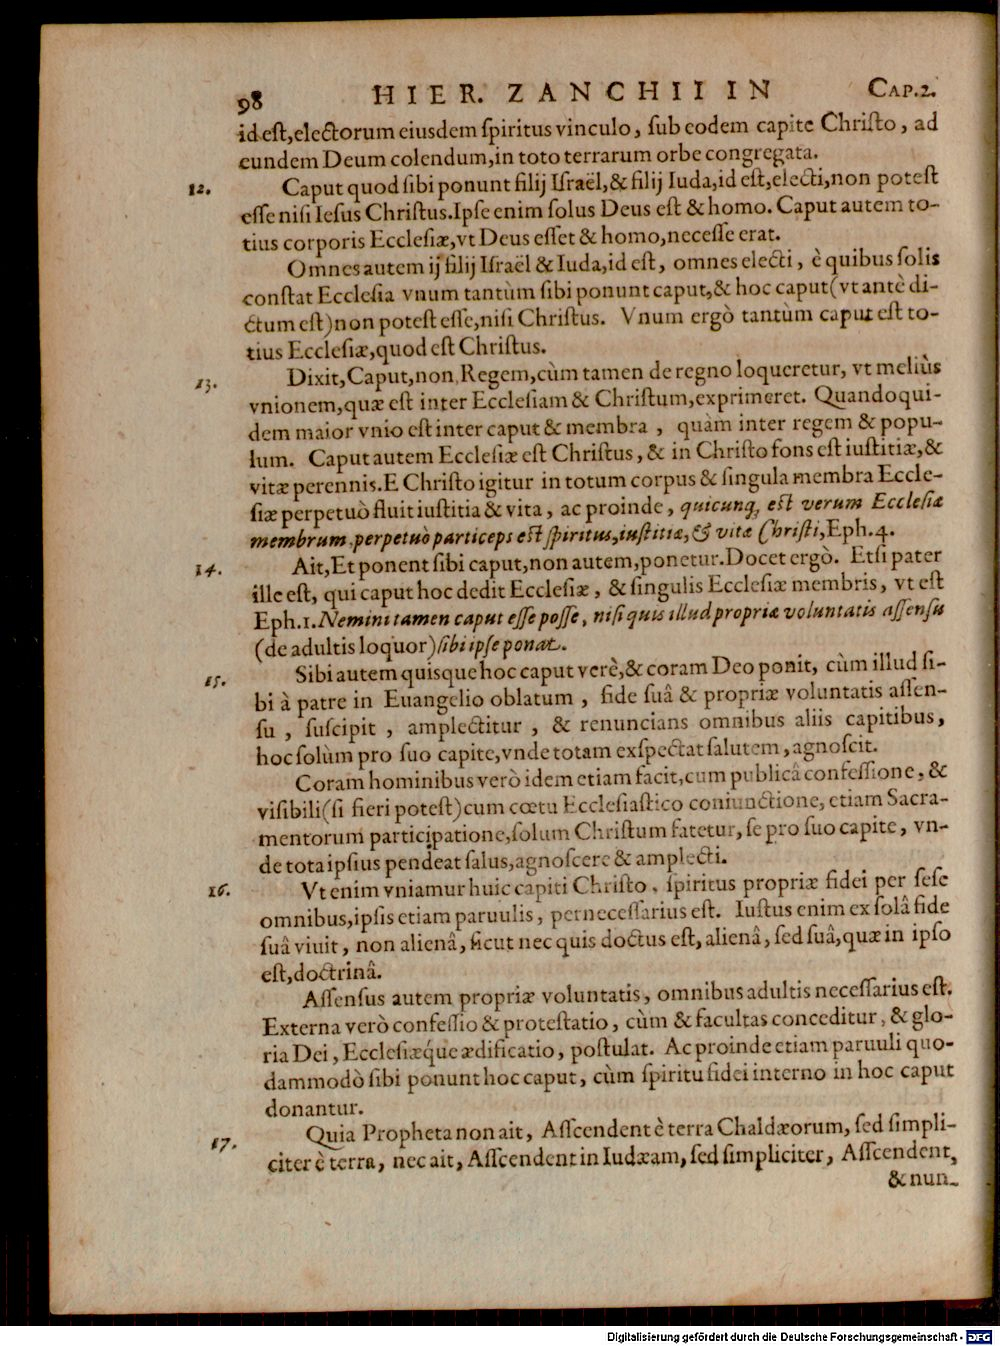 98 HIER. ZANCHII IN CAP.2.
id est,electorum eiusdem spiritus vinculo, sub eodem capite Christo, ad
eundem Deum colendum,in toto terrarum orbe congregata.
12. Caput quod sibi ponunt filij Israël,& filij Iuda,id est,electi,non potest
esse nisi Iesus Christus.Ipse enim solus Deus est & homo. Caput autem to-
tius corporis Ecclesiæ,vt Deus esset & homo,necesse erat.
Omnes autem ij filij Israël & Iuda,id est, omnes electi, è quibus solis
constat Ecclesia vnum tantùm sibi ponunt caput,& hoc caput(vt antè di-
ctum est)non potest esse,nisi Christus. Vnum ergò tantùm caput est to-
tius Ecclesiæ,quod est Christus.
13. Dixit,Caput,non Regem,cùm tamen de regno loqueretur, vt meliùs
vnionem,quæ est inter Ecclesiam & Christum,exprimeret. Quandoqui-
dem maior vnio est inter caput & membra , quàm inter regem & popu-
lum. Caput autem Ecclesiæ est Christus, & in Christo fons est iustitiæ,&
vitæ perennis.E Christo igitur in totum corpus & singula membra Eccle-
siæ perpetuò fluit iustitia & vita, ac proinde, quicunq; est verum Ecclesiæ
membrum,perpetuò particeps est spiritus,iustitiæ, & vitæ Christi,Eph.4.
14. Ait,Et ponent sibi caput,non autem,ponetur.Docet ergò. Etsi pater
ille est, qui caput hoc dedit Ecclesiæ, & singulis Ecclesiæ membris, vt est
Eph.1.Nemini tamen caput esse posse, nisi quis illud propriæ voluntatis assensu
(de adultis loquor)sibi ipse ponat.
15. Sibi autem quisque hoc caput verè,& coram Deo ponit, cùm illud si-
bi à patre in Euangelio oblatum , fide suâ & propriæ voluntatis assen-
su , suscipit , amplectitur , & renuncians omnibus aliis capitibus,
hoc solùm pro suo capite,vnde totam exspectat salutem,agnoscit.
Coram hominibus verò idem etiam facit,cum publicâ confessione, &
visibili(si fieri potest)cum cœtu Ecclesiastico coniunctione, etiam Sacra-
mentorum participatione,solum Christum fatetur, se pro suo capite, vn-
de tota ipsius pendeat salus,agnoscere & amplecti.
16. Vt enim vniamur huic capiti Christo, spiritus propriæ fidei per sese
omnibus,ipsis etiam paruulis, pernecessarius est. Iustus enim ex solâ fide
suâ viuit, non alienâ, sicut nec quis doctus est, alienâ, sed suâ,quæ in ipso
est,doctrinâ.
Assensus autem propriæ voluntatis, omnibus adultis necessarius est.
Externa verò confessio & protestatio, cùm & facultas conceditur, & glo-
ria Dei, Ecclesiæq́ue ædificatio, postulat. Ac proinde etiam paruuli quo-
dammodò sibi ponunt hoc caput, cùm spiritu fidei interno in hoc caput
donantur.
17. Quia Propheta non ait, Asscendent è terra Chaldæorum, sed simpli-
citer è terra, nec ait, Asscendent in Iudæam, sed simpliciter, Asscendent,
& nun-
Digitalisierung gefördert durch die Deutsche Forschungsgemeinschaft - DFG